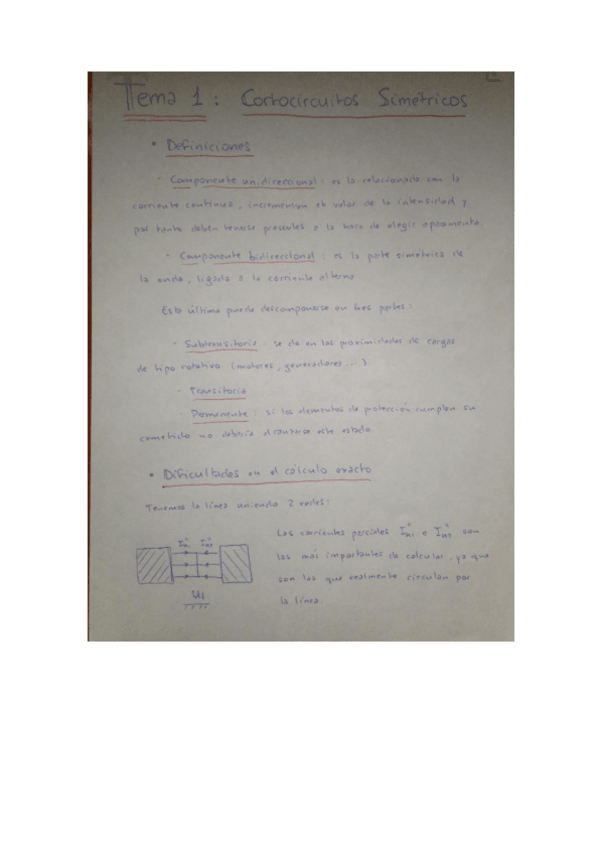 Tema 1: Cortocircuitos Simétricos
• Definiciones
- Componente unidireccional: es la relacionada con la
corriente continua, incrementan el valor de la intensidad y
por tanto deben tenerse presentes a la hora de elegir aparamenta.
- Componente bidireccional: es la parte simétrica de
la onda, ligada a la corriente alterna
Esta última puede descomponerse en tres partes:
- Subtransitoria: se da en las proximidades de cargas
de tipo rotativo (motores, generadores...)
- Transitoria
- Permanente: si los elementos de protección cumplen su
cometido no debería alcanzarse este estado.
• Dificultades en el cálculo exacto
Tenemos la línea uniendo 2 redes:
Las corrientes parciales I"k1 e I"k2 son
las más importantes de calcular, ya que
son las que realmente circulan por
la línea.
I"k1 I"k2